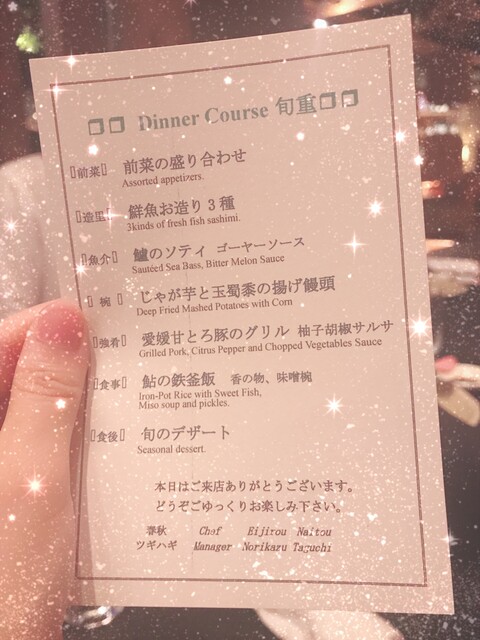 ❒❒ Dinner Course 旬重❒❒
▯前菜▯ 前菜の盛り合わせ
Assorted appetizers.
▯造里▯ 鮮魚お造り3種
3kinds of fresh fish sashimi.
▯魚介▯ 鱸のソティ ゴーヤーソース
Sauteed Sea Bass, Bitter Melon Sauce
▯椀▯ じゃが芋と玉蜀黍の揚げ饅頭
Deep Fried Mashed Potatoes with Corn
▯強肴▯ 愛媛甘とろ豚のグリル 柚子胡椒サルサ
Grilled Pork, Citrus Pepper and Chopped Vegetables Sauce
▯食事▯ 鮎の鉄釜飯 香の物、味噌椀
Iron-Pot Rice with Sweet Fish,
Miso soup and pickles.
▯食後▯ 旬のデザート
Seasonal dessert.
本日はご来店ありがとうございます。
どうぞごゆっくりお楽しみ下さい。
春秋 Chef Eijirou Naitou
ツギハギ Manager Norikazu Taguchi